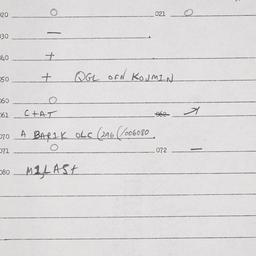 020 O 021 O
030 —
040 +
050 + QGL OFN KOJMIN
060 O
061 C+AT 062
070 A BARIK OLC (2AG (/006080
071 O 072 —
080 M1,LAS+